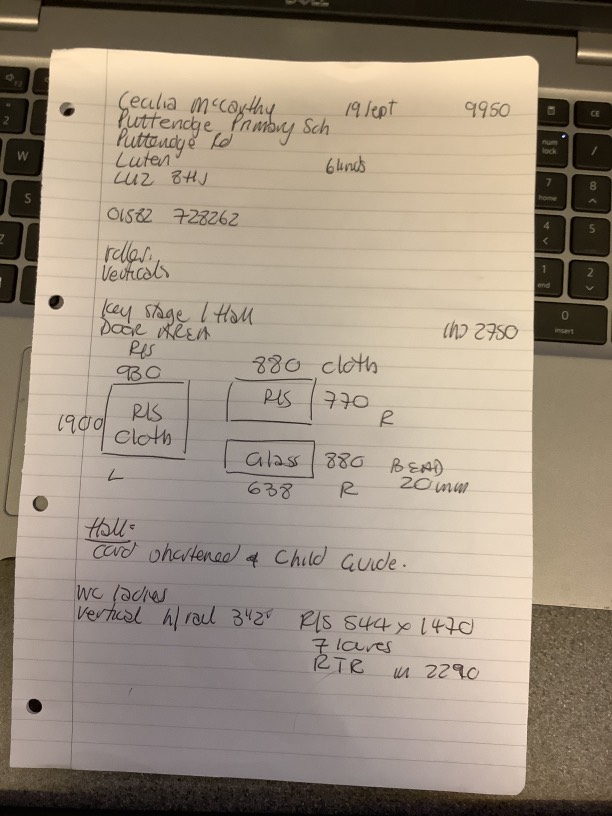 DELL
Cecilia McCarthy 19 Sept 9950
Puttendge Primary Sch
Puttendge Rd
Luton 6 units
LU2 8HJ
01582 728262
roller.
Verticals
Key stage 1 Hall
DOOR AREA (h) 2750
R/S
930
1900
R/S
cloth
L
880 cloth
R/S 770
R
Glass 880 BEAD
638 R 20mm
Hall:
Card shortened & Child Guide.
WC ladies
Vertical h/rail 342" R/S 544 x 1470
7 louvres
RTR 2290
num
lock
CE
/
7
home
8
4
5
1
end
2
0
insert
W
S
Z
2